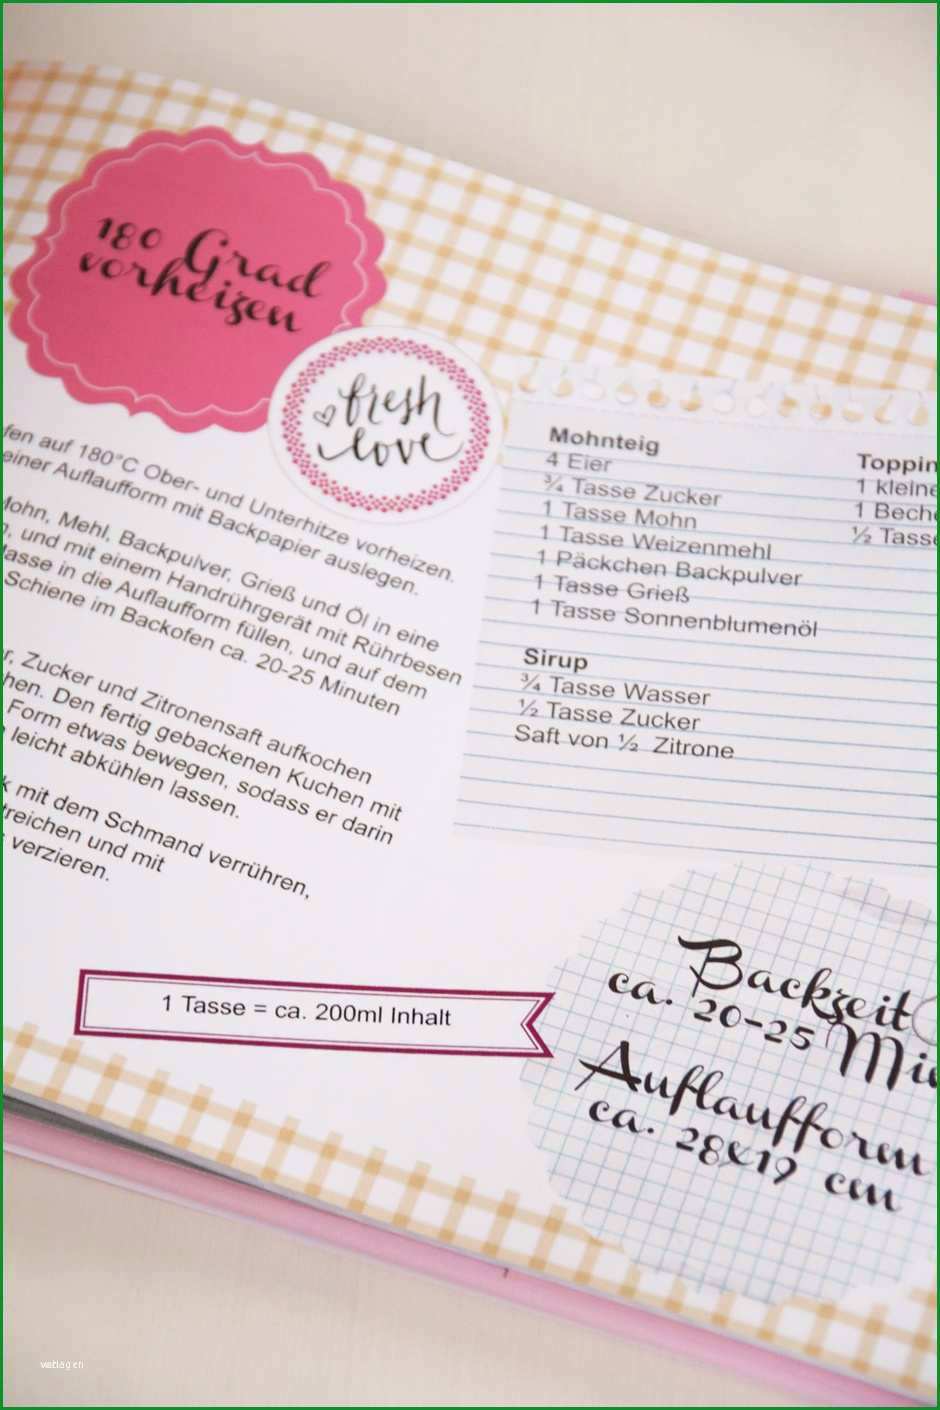 180 Grad
vorheizen
fresh
love
fen auf 180°C Ober- und Unterhitze vorheizen.
einer Auflaufform mit Backpapier auslegen.
Mohn, Mehl, Backpulver, Grieß und Öl in eine
und mit einem Handrührgerät mit Rührbesen
asse in die Auflaufform füllen, und auf dem
Schiene im Backofen ca. 20-25 Minuten
r, Zucker und Zitronensaft aufkochen
hen. Den fertig gebackenen Kuchen mit
Form etwas bewegen, sodass er darin
leicht abkühlen lassen.
k mit dem Schmand verrühren,
treichen und mit
verzieren.
1 Tasse = ca. 200ml Inhalt
Mohnteig
4 Eier
¾ Tasse Zucker
1 Tasse Mohn
1 Tasse Weizenmehl
1 Päckchen Backpulver
1 Tasse Grieß
1 Tasse Sonnenblumenöl
Sirup
¾ Tasse Wasser
½ Tasse Zucker
Saft von ½ Zitrone
Toppin
1 kleine
1 Beche
½ Tasse
Backzeit
ca. 20-25 Mi
Auflaufform
ca. 28x19 cm